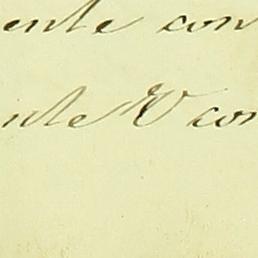 ente con
nte V con